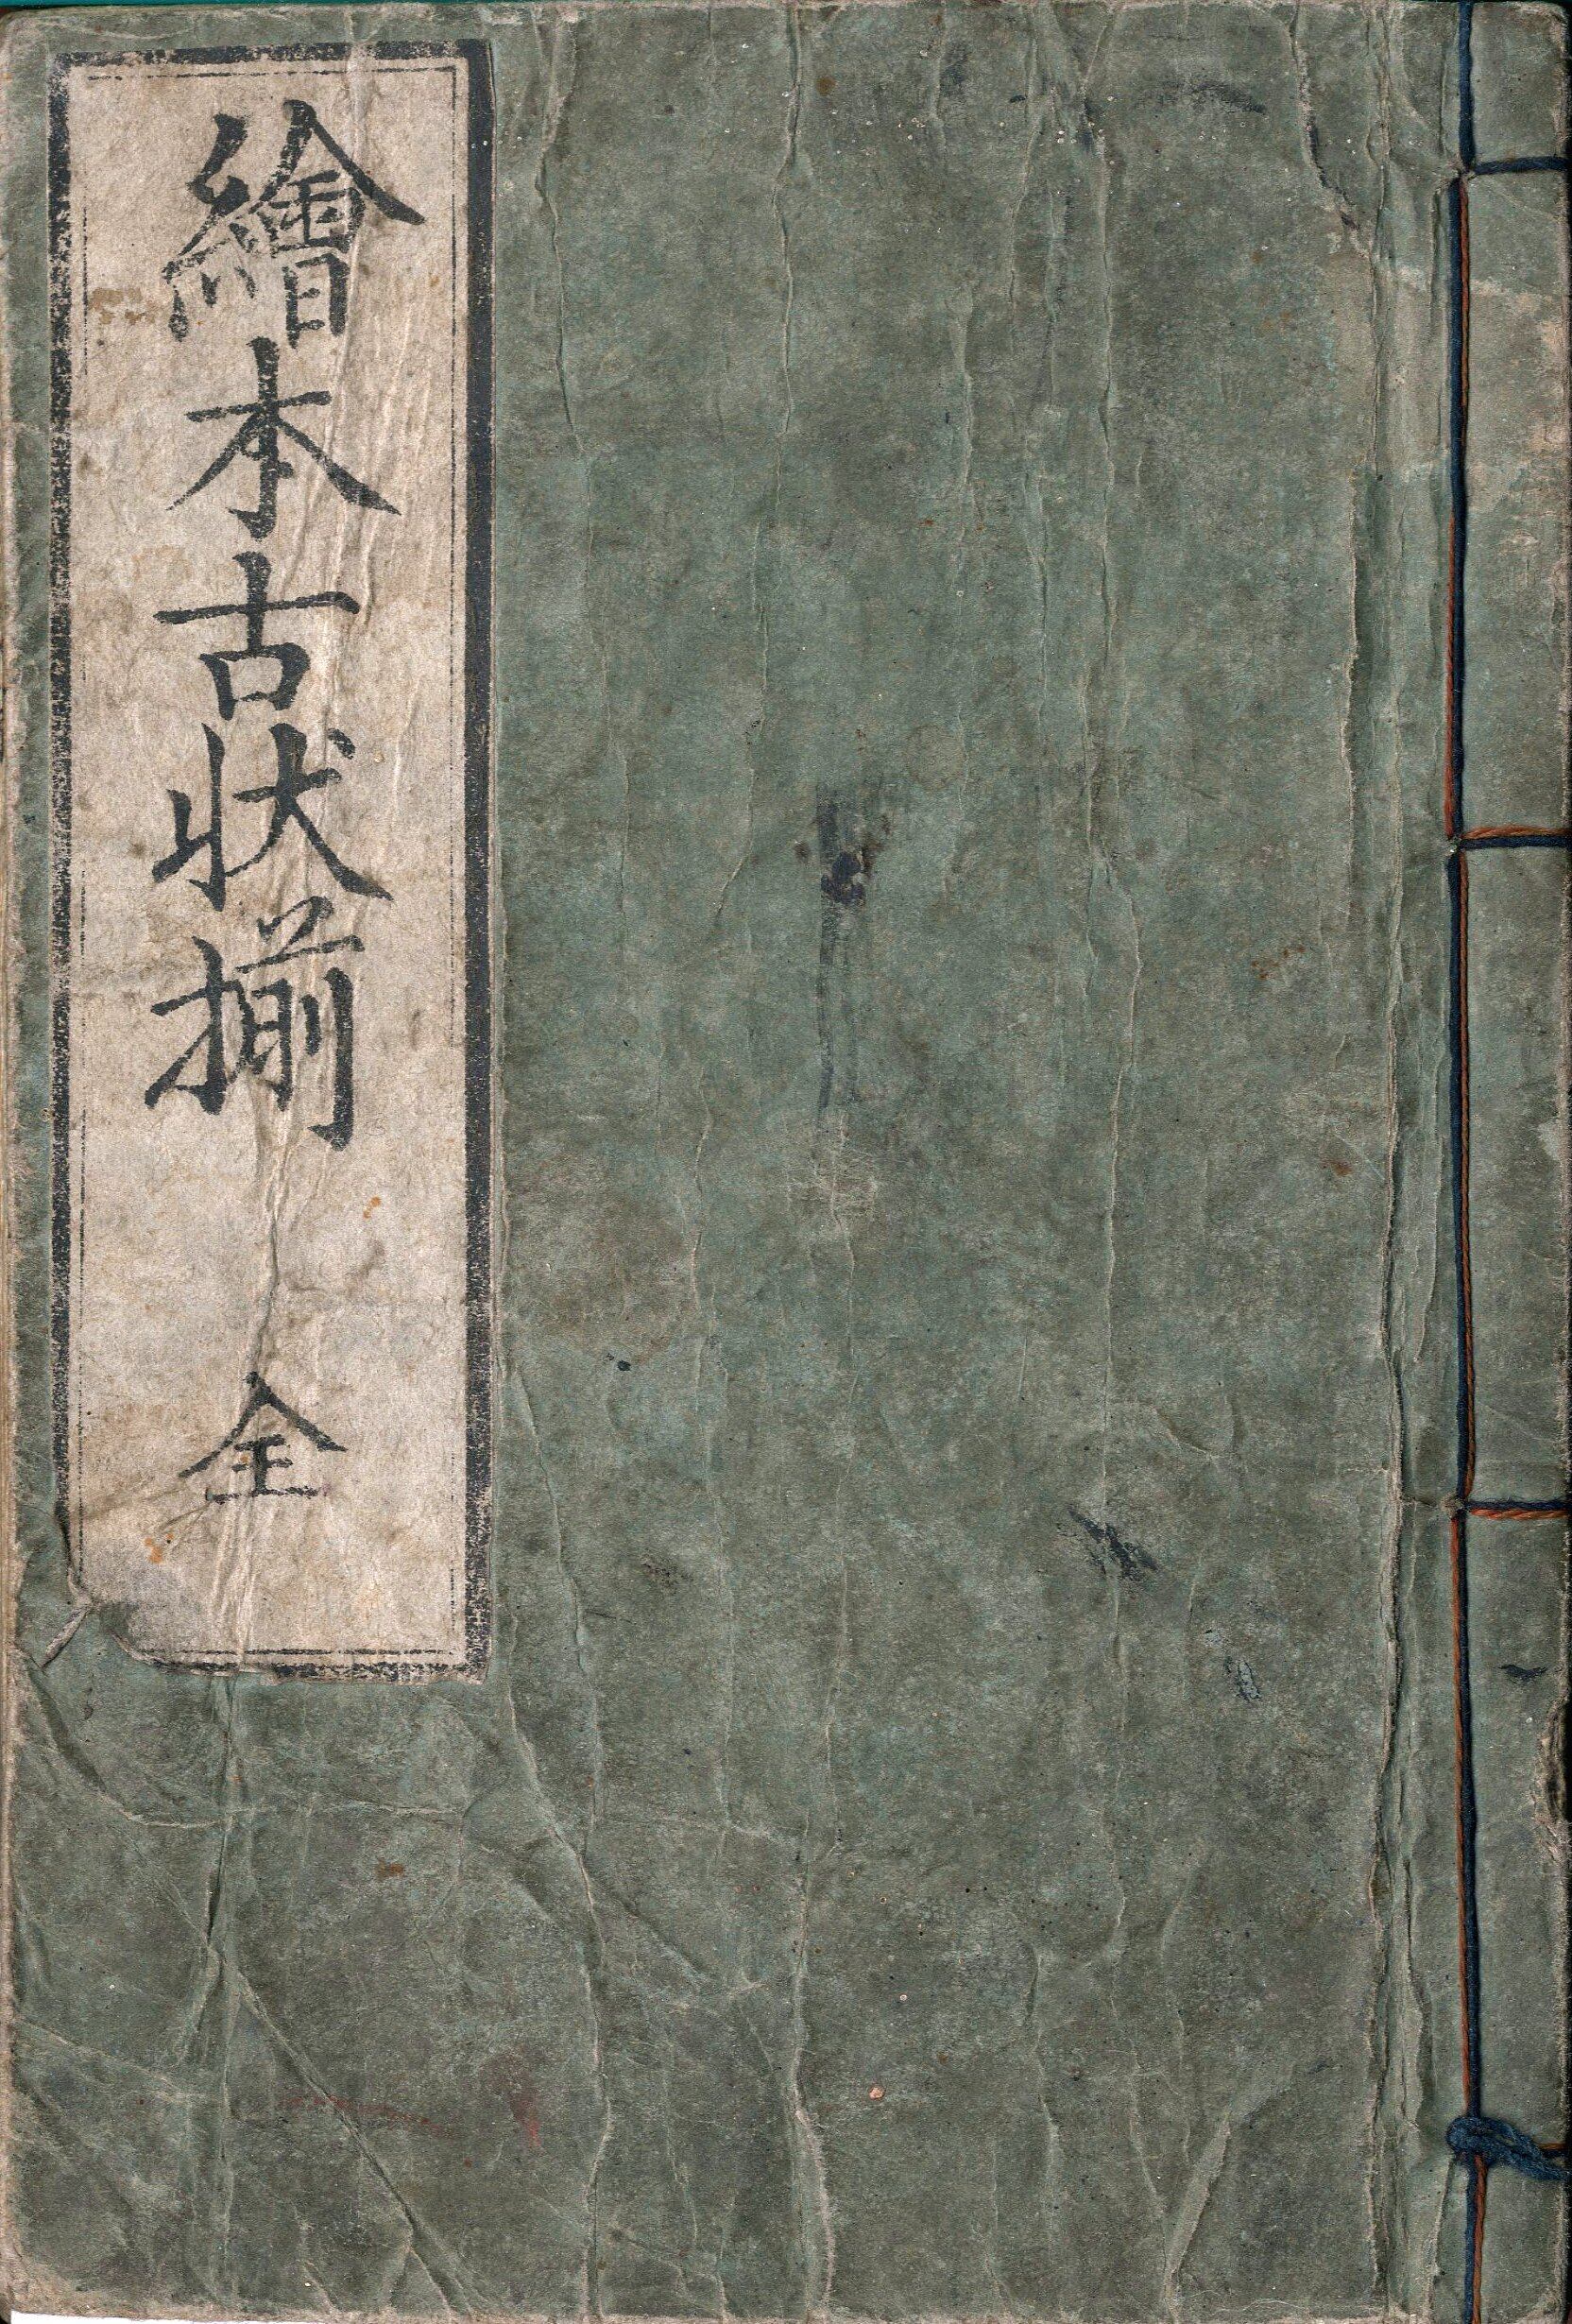 繪本古状揃 全